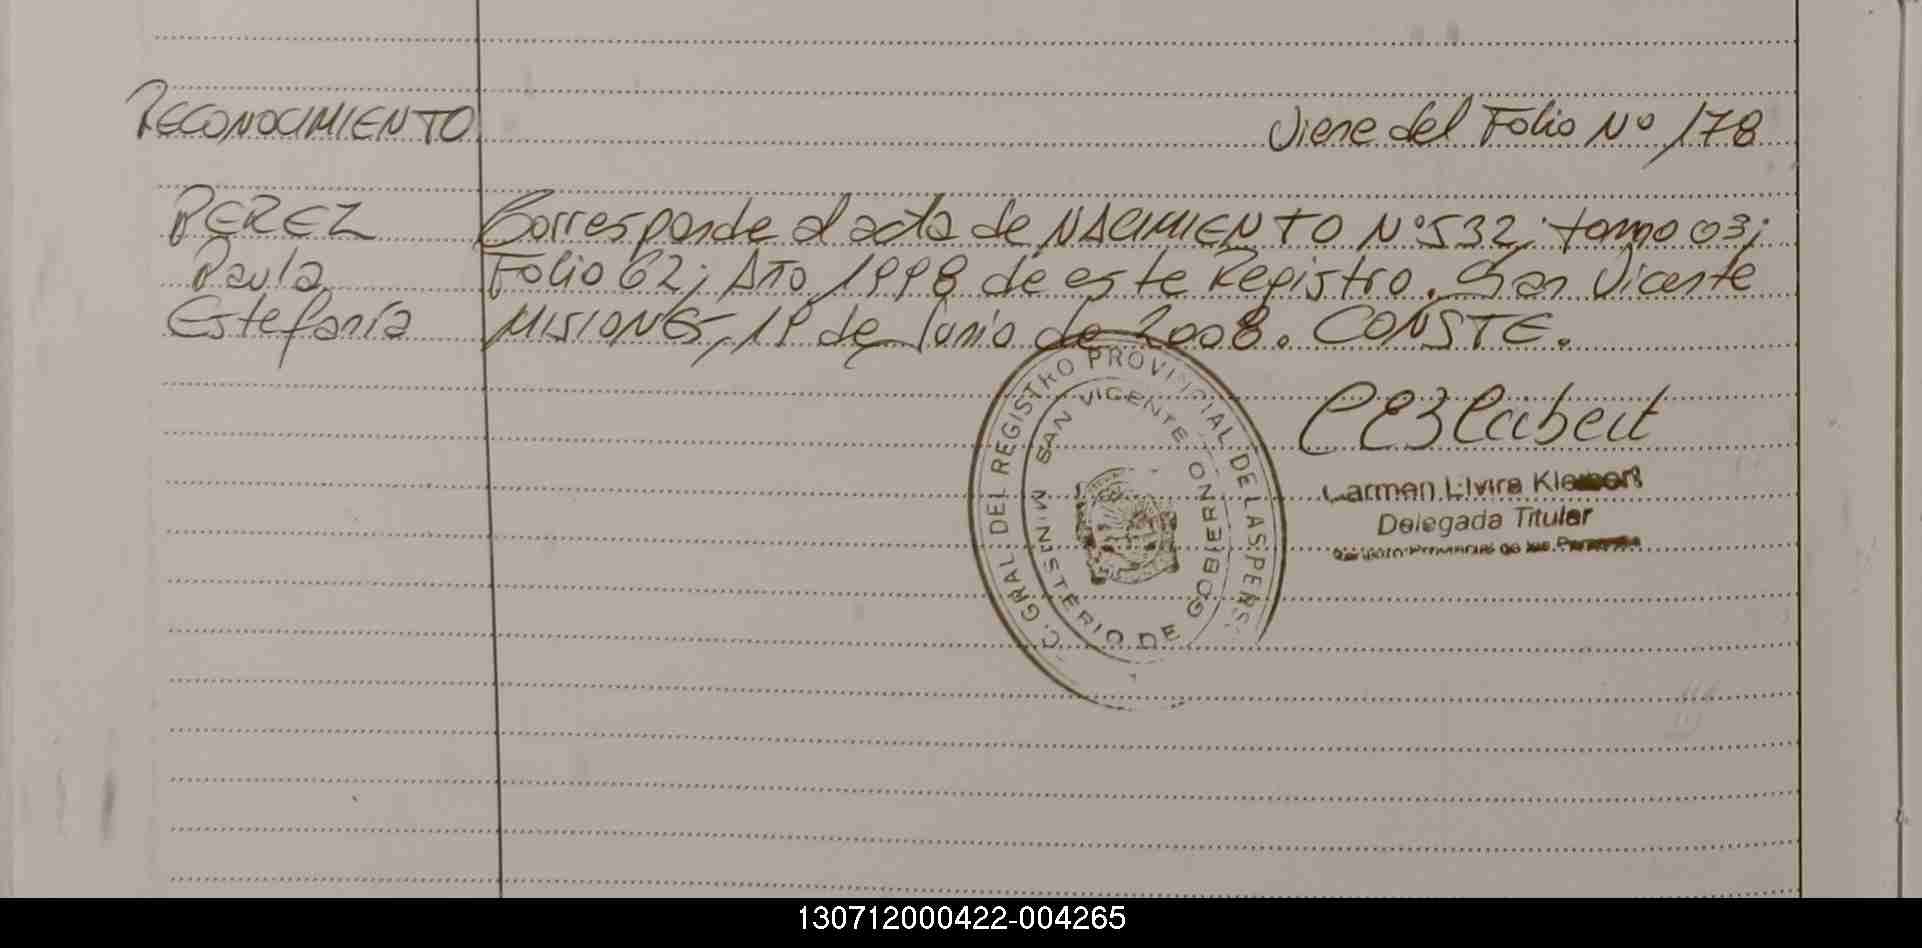 RECONOCIMIENTO
Viene del Folio Nº 178
PEREZ
Paula
Estefanía
Corresponde al acta de NACIMIENTO Nº 532; tomo 03;
Folio 62; Año 1998 de este Registro. San Vicente
MISIONES, 19 de Junio de 2008. CONSTE.
GRAL DEL REGISTRO PROVINCIAL DE LAS PERS
SAN VICENTE
MINISTERIO DE GOBIERNO
Carmen Elvira
Delegada Titular
130712000422-004265